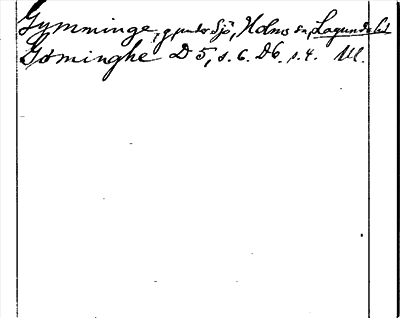 Gymminge, g under Sjö, Holms sn, Lagunda hd
Göminghe D 5, s. 6. D6. s. 4. Ul.